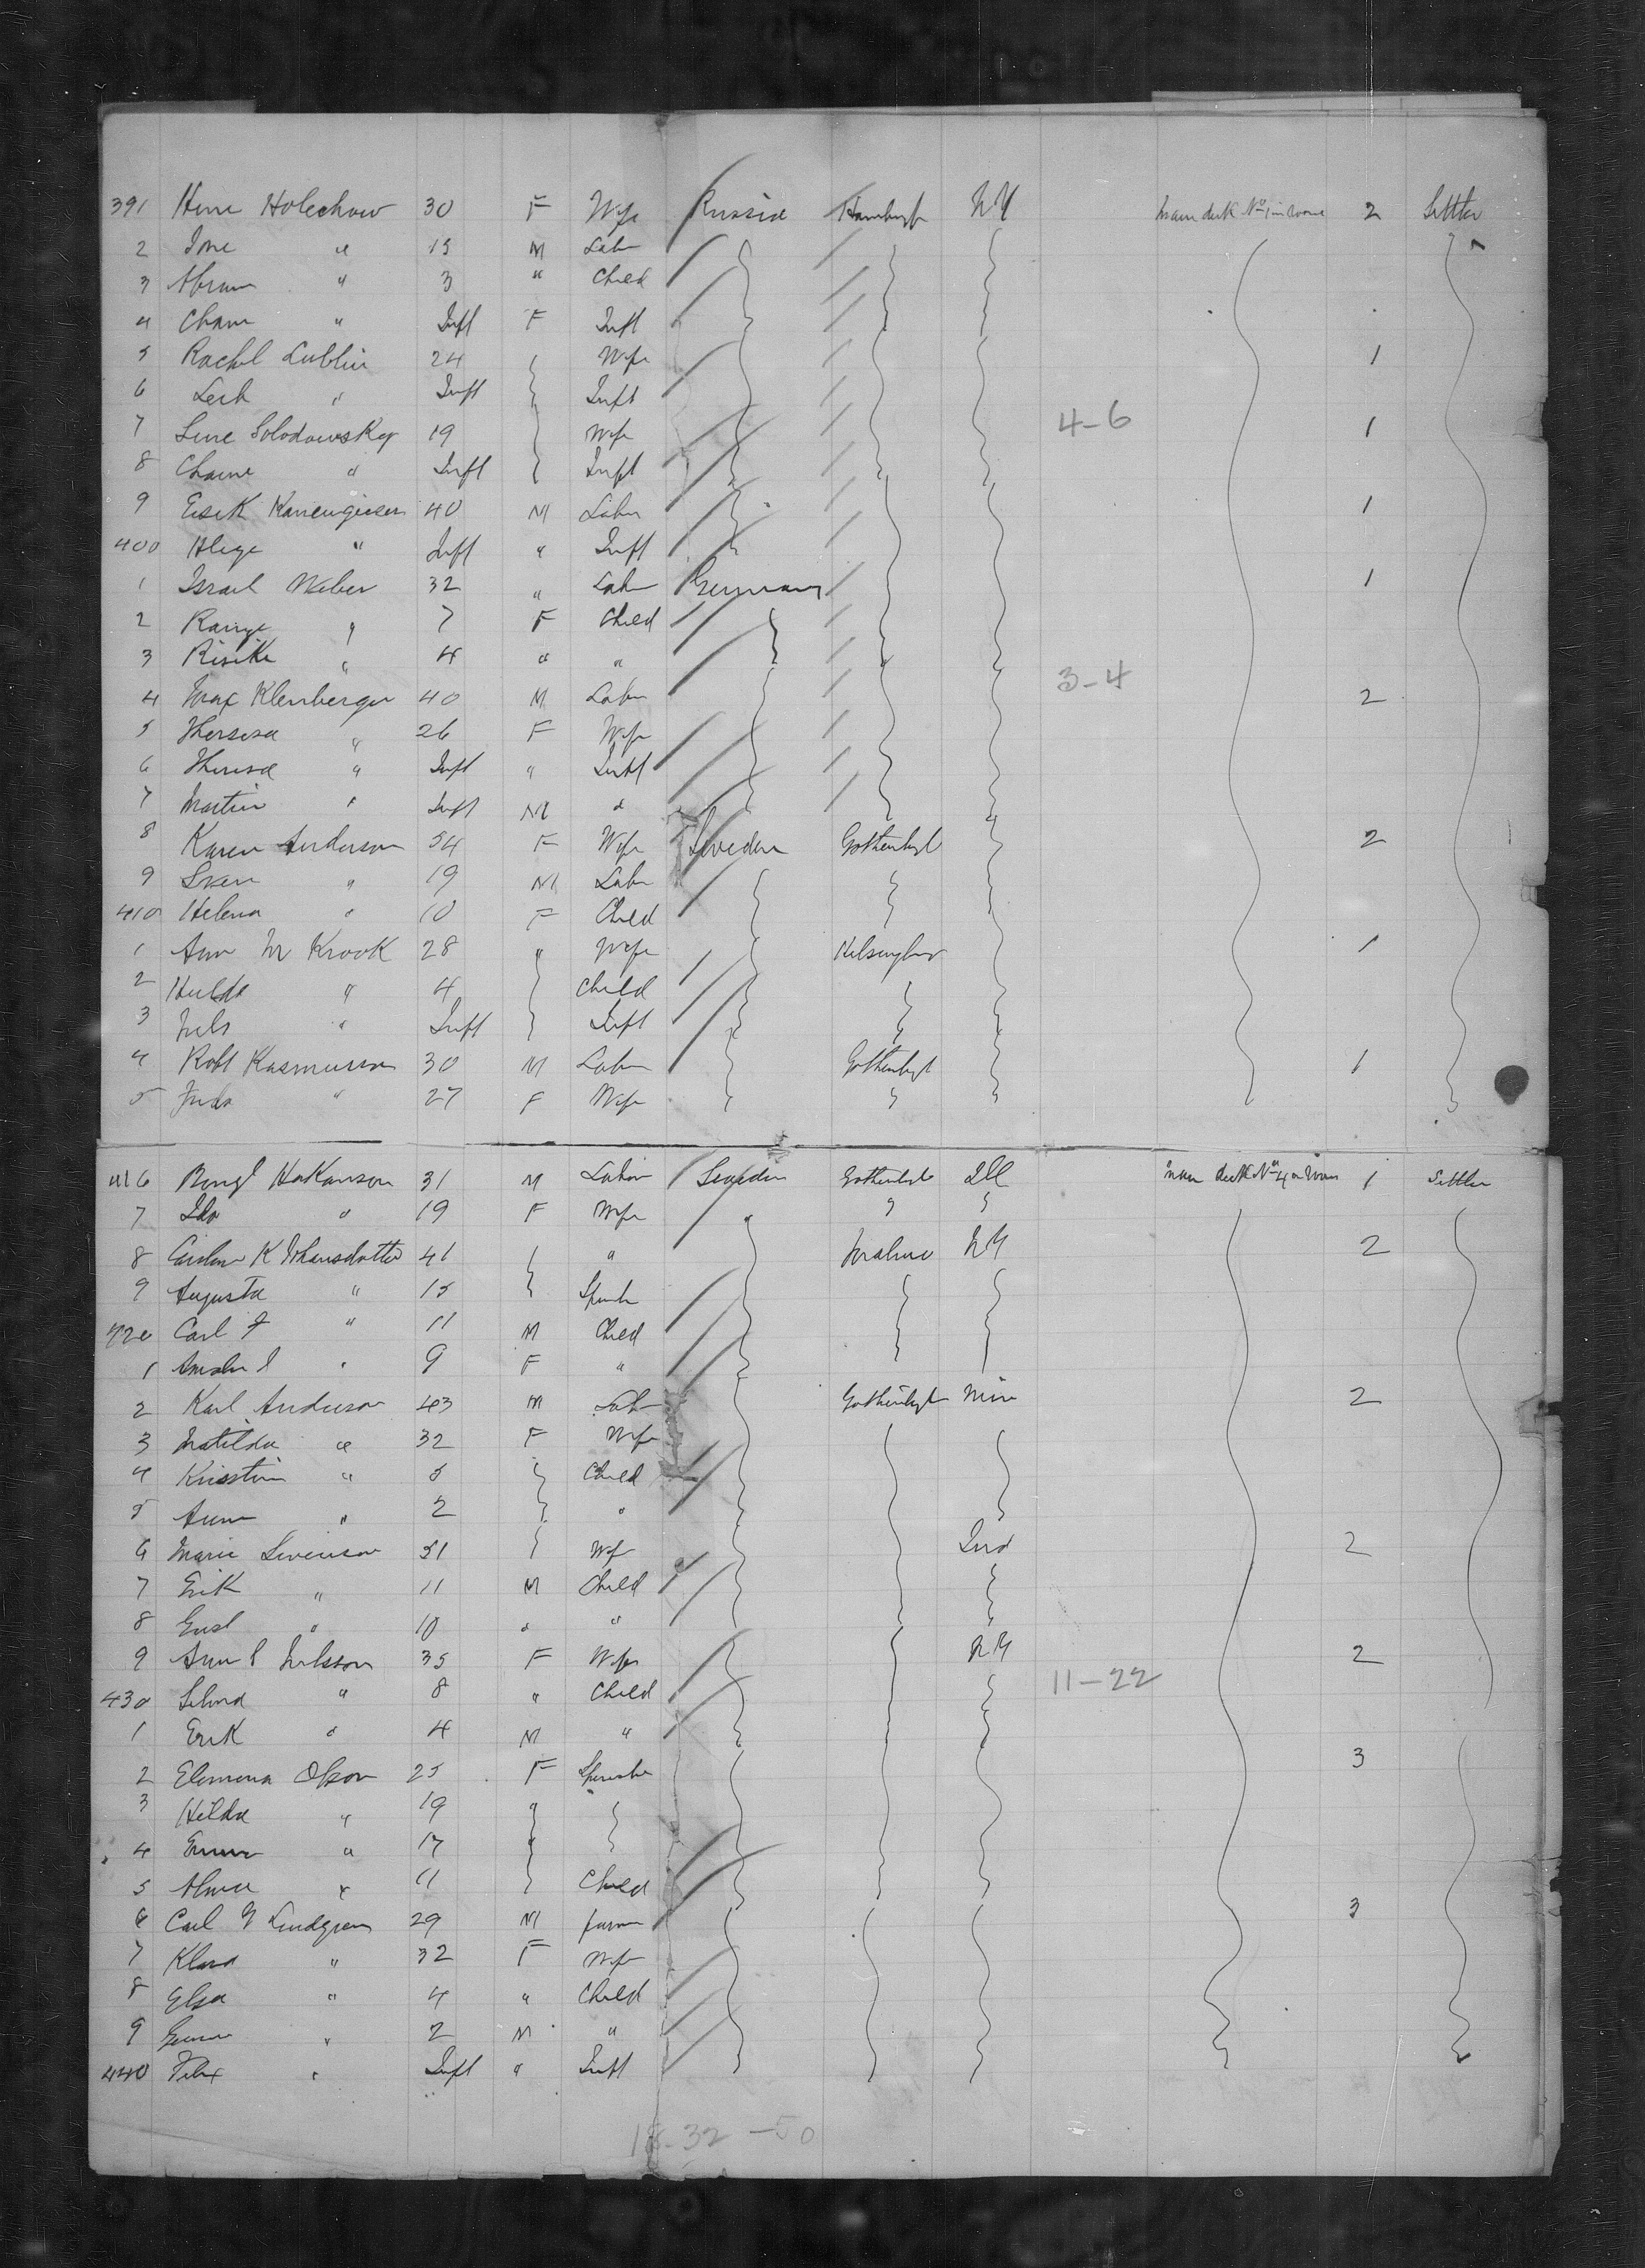 391 Hene Holechow 30 F Wife Russia Hamburgh NY Main deck No 1 in Room 2 Settler
2 Ione " 15 M Labr
3 Abram " 3 " Child
4 Chane " Inft F Inft
5 Rachel Lublin 24 Wife 1
6 Leib " Inft Inft
7 Line Solodowsky 19 Wife 4-6 1
8 Chaine " Inft Inft
9 Eisik Kanengieser 40 M Labr 1
400 Hlege " Inft " Inft
1 Israel Weber 32 " Labr Germany 1
2 Range " 7 F Child
3 Risike " 4 " " 3-4
4 Max Klenberger 40 M Labr 2
5 Theresa " 26 F Wife
6 Theresa " Inft " Inft
7 Martin " Inft M "
8 Karen Anderson 54 F Wife Sweden Gothenbgh 2
9 Sven " 19 M Labr
410 Helena " 10 F Child
1 Ann M Krook 28 " Wife Helsingbor 1
2 Hulda " 4 Child
3 Nels " Inft Inft
4 Robt Rasmusson 30 M Labr Gothenbgh 1
5 " 27 F Wife
416 Bengt Hakanson 31 M Labor Sweden Gothenbgh Ill Main deck No 4 in Room 1 Settler
7 Ida " 19 F Wife
8 K Johansdotter 41 " Malmo NY 2
9 Augusta " 15 Spinstr
420 Carl F " 11 M Child
1 " 9 F "
2 Karl Anderson 43 M Labr Gothenbgh Minn 2
3 Matilda " 32 F Wife
4 Kristin " 5 Child
5 Anna " 2 "
6 Marie Swenson 51 Wife Ind 2
7 Erik " 11 M Child
8 Gust " 10 " "
9 Ann S Nilsson 35 F Wife NY 2
430 Selma " 8 " Child 11-22
1 Erik " 4 M "
2 Elemena Olson 25 F Spinster 3
3 Hilda " 19
4 Emma " 17
5 Alma " 11 Child
6 Carl G Lindgren 29 M farmr 3
7 Klara " 32 F Wife
8 Elsa " 4 " Child
9 " 2 M "
440 Felix " Inft " Inft
18-32-50